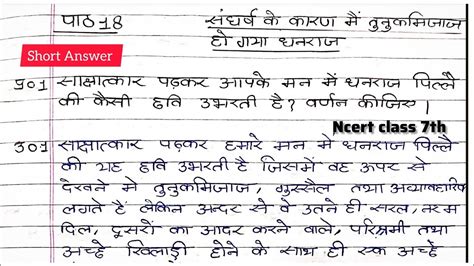 पाठ 18
संघर्ष के कारण मैं तुनुकमिजाज
हो गया धनराज
Short Answer
प्र01 साक्षात्कार पढ़कर आपके मन में धनराज पिल्लै
की कैसी छवि उभरती है? वर्णन कीजिए।
Ncert class 7th
उ01 साक्षात्कार पढ़कर हमारे मन मे धनराज पिल्लै
की यह छवि उभरती है जिसमें वह ऊपर से
देखने मे तुनुकमिजाज, गुस्सैल तथा अव्यावहारिक
लगते हैं लेकिन अन्दर से वे उतने ही सरल, नरम
दिल, दूसरों का आदर करने वाले, परिश्रमी तथा
अच्छे खिलाड़ी होने के साथ ही एक अच्छे